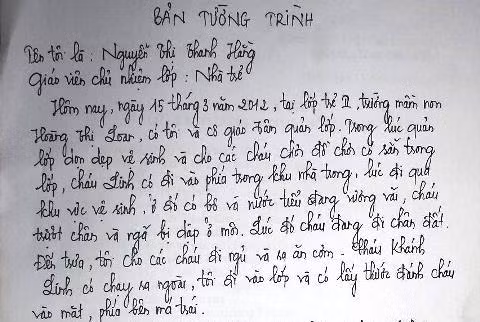 BẢN TƯỜNG TRÌNH
Tên tôi là : Nguyễn Thị Thanh Hằng
Giáo viên chủ nhiệm lớp : Nhà trẻ
Hôm nay, ngày 15 tháng 3 năm 2012, tại lớp trẻ II, trường mầm non
Hoàng Thị Loan, có tôi và cô giáo Tâm quản lớp. Trong lúc quản
lớp dọn dẹp vệ sinh và cho các cháu chơi đồ chơi có sẵn trong
lớp, cháu Linh có đi vào phía trong khu nhà trong, lúc đi qua
khu vực vệ sinh, ở đó có bô và nước tiểu đang vương vãi, cháu
trượt chân và ngã bị dập ở môi. Lúc đó cháu đang đi chân đất.
Đến trưa, tôi cho các cháu đi ngủ và ra ăn cơm. Cháu Khánh
Linh có chạy ra ngoài, tôi đi vào lớp và có lấy thước đánh cháu
vào mặt, phía bên má trái.